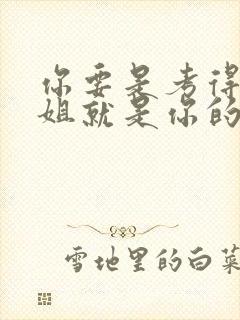 你要是考得
姐就是你的
雪地里的白菜